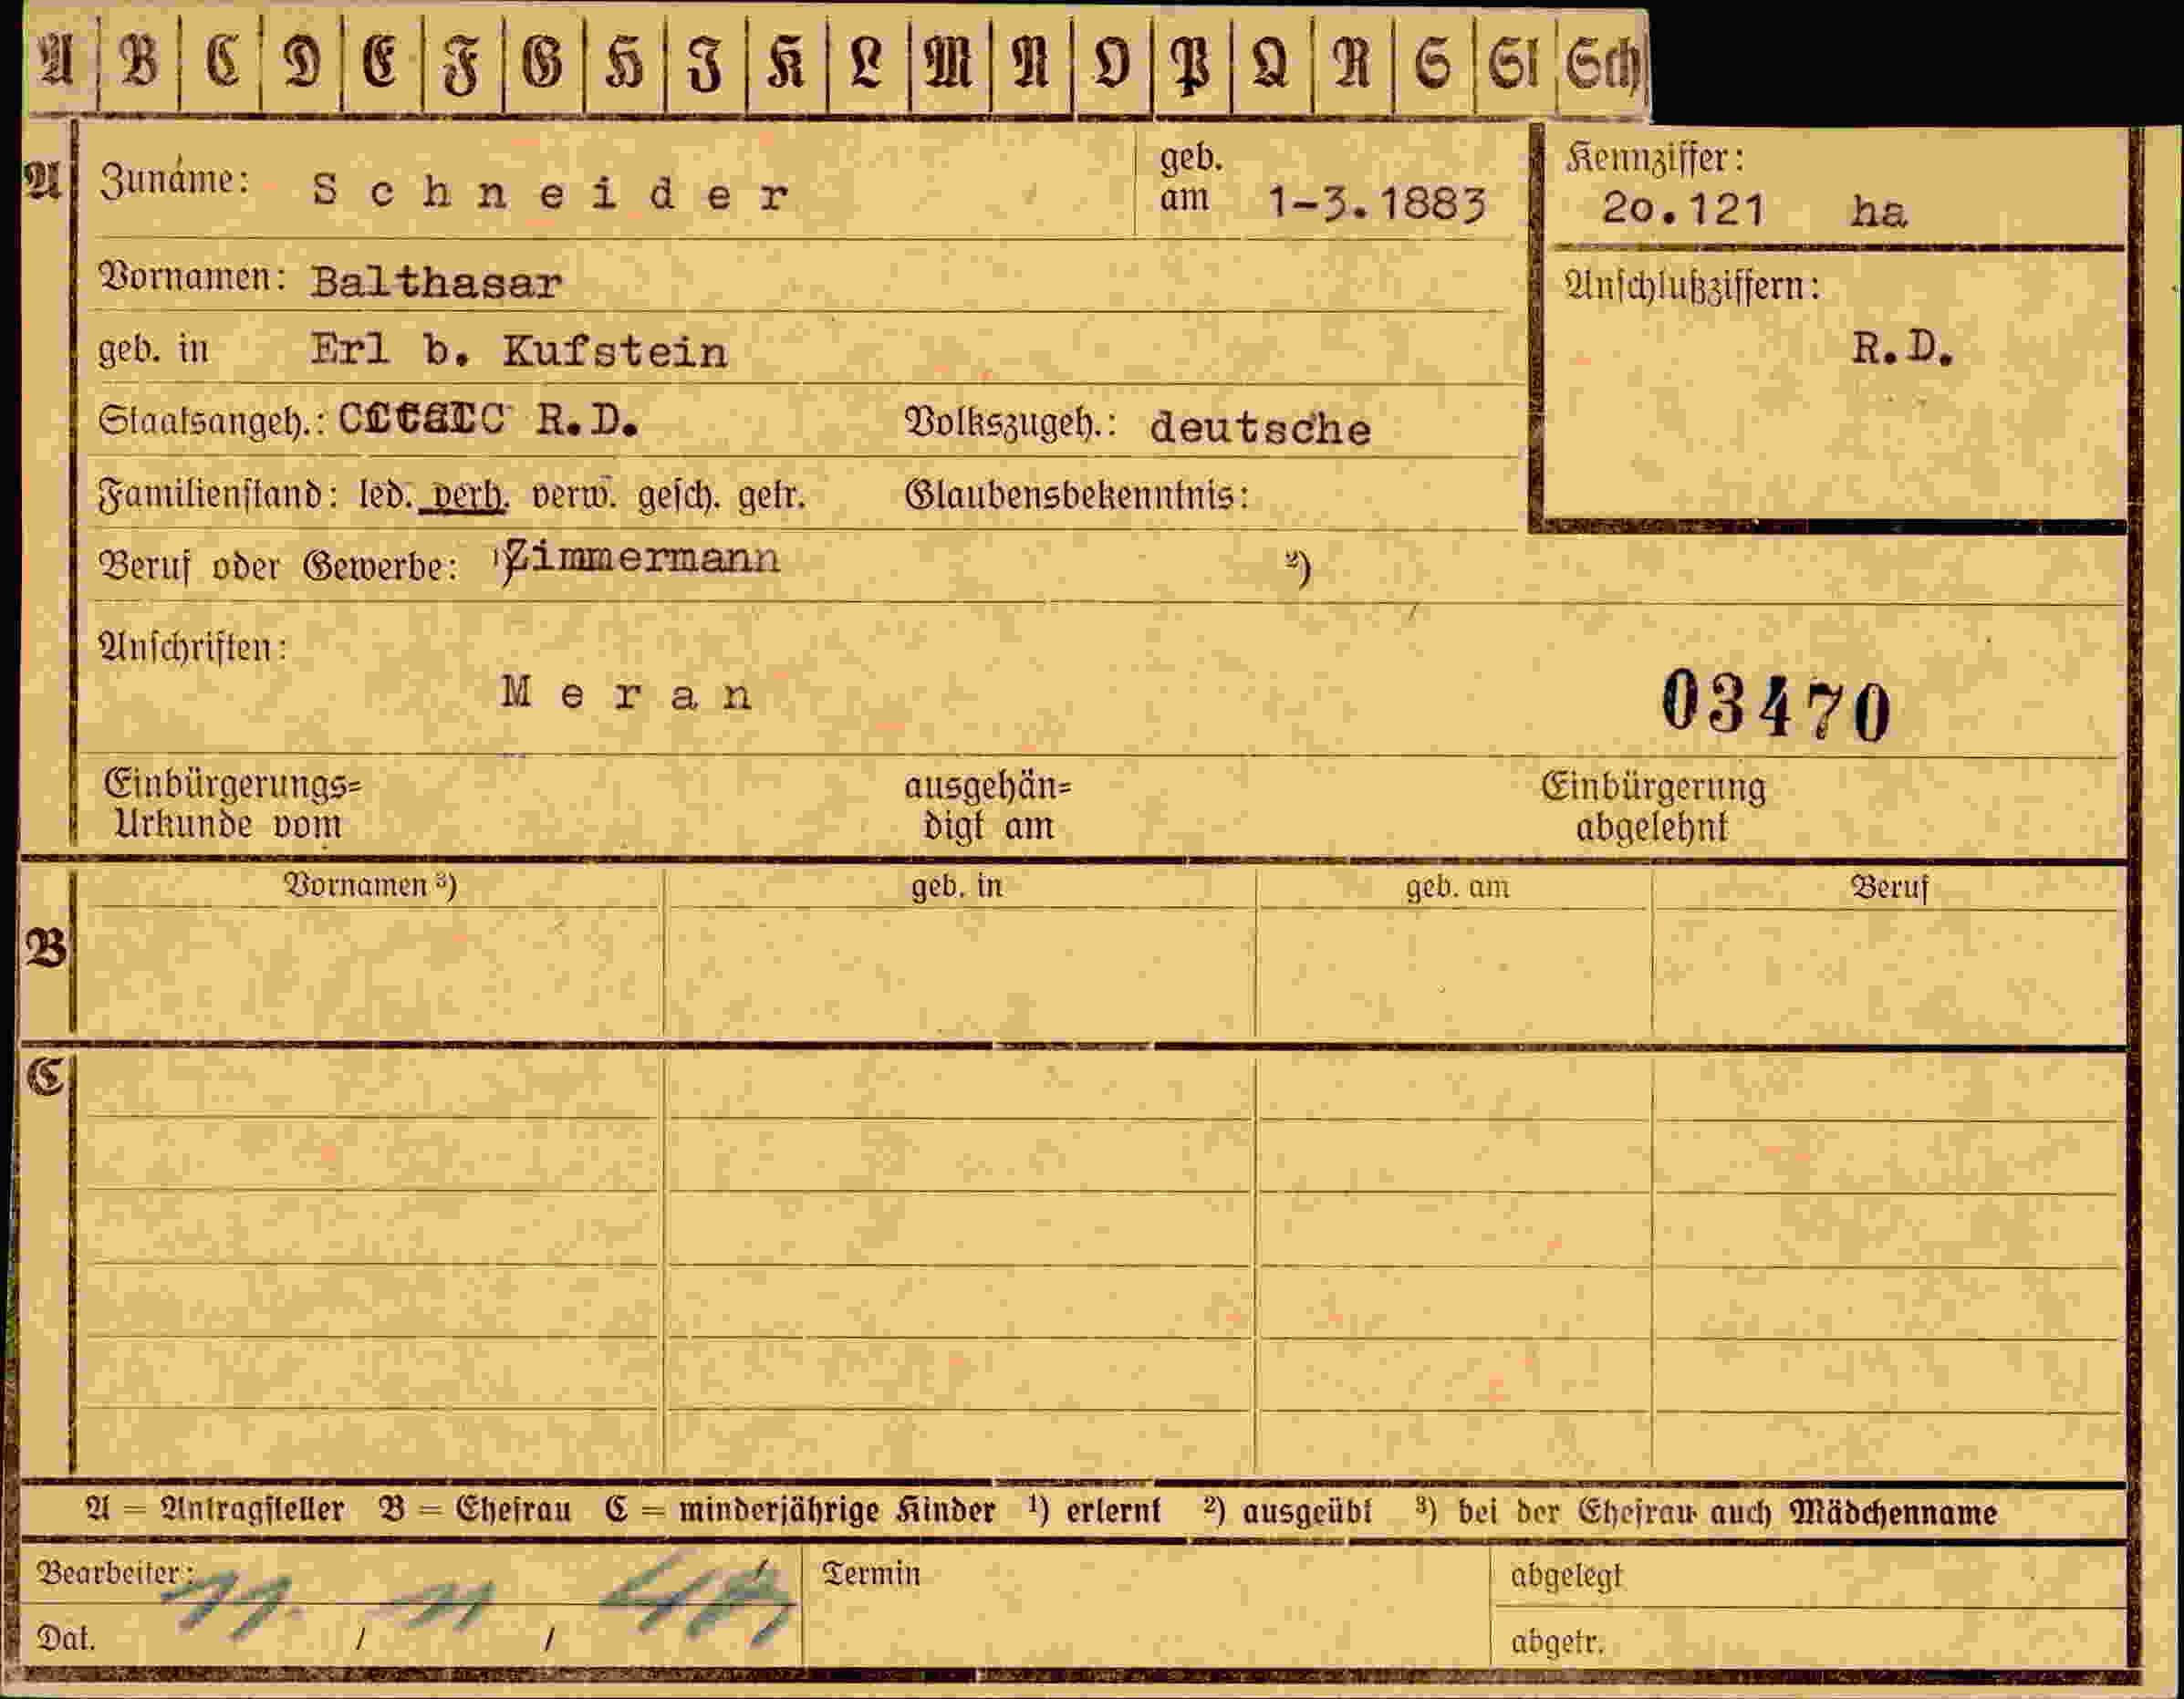 A B C D E F G H I K L M N O P Q R S St Sch
A
Zuname: Schneider
geb. am 1-3.1883
Kennziffer:
2o.121 ha
Vornamen: Balthasar
Anschlußziffern:
R.D.
geb. in Erl b. Kufstein
Staatsangeh.: R.D. Volkszugeh.: deutsche
Familienstand: led. verh. verw. gesch. getr. Glaubensbekenntnis:
Beruf oder Gewerbe: ¹) Zimmermann ²)
Anschriften:
Meran
03470
Einbürgerungs=
Urkunde vom
ausgehän=
digt am
Einbürgerung
abgelehnt
B
Vornamen ³) geb. in geb. am Beruf
C
A = Antragsteller B = Ehefrau C = minderjährige Kinder ¹) erlernt ²) ausgeübt ³) bei der Ehefrau auch Mädchenname
Bearbeiter:
Dat. 11. / 11 /
Termin
abgelegt
abgetr.